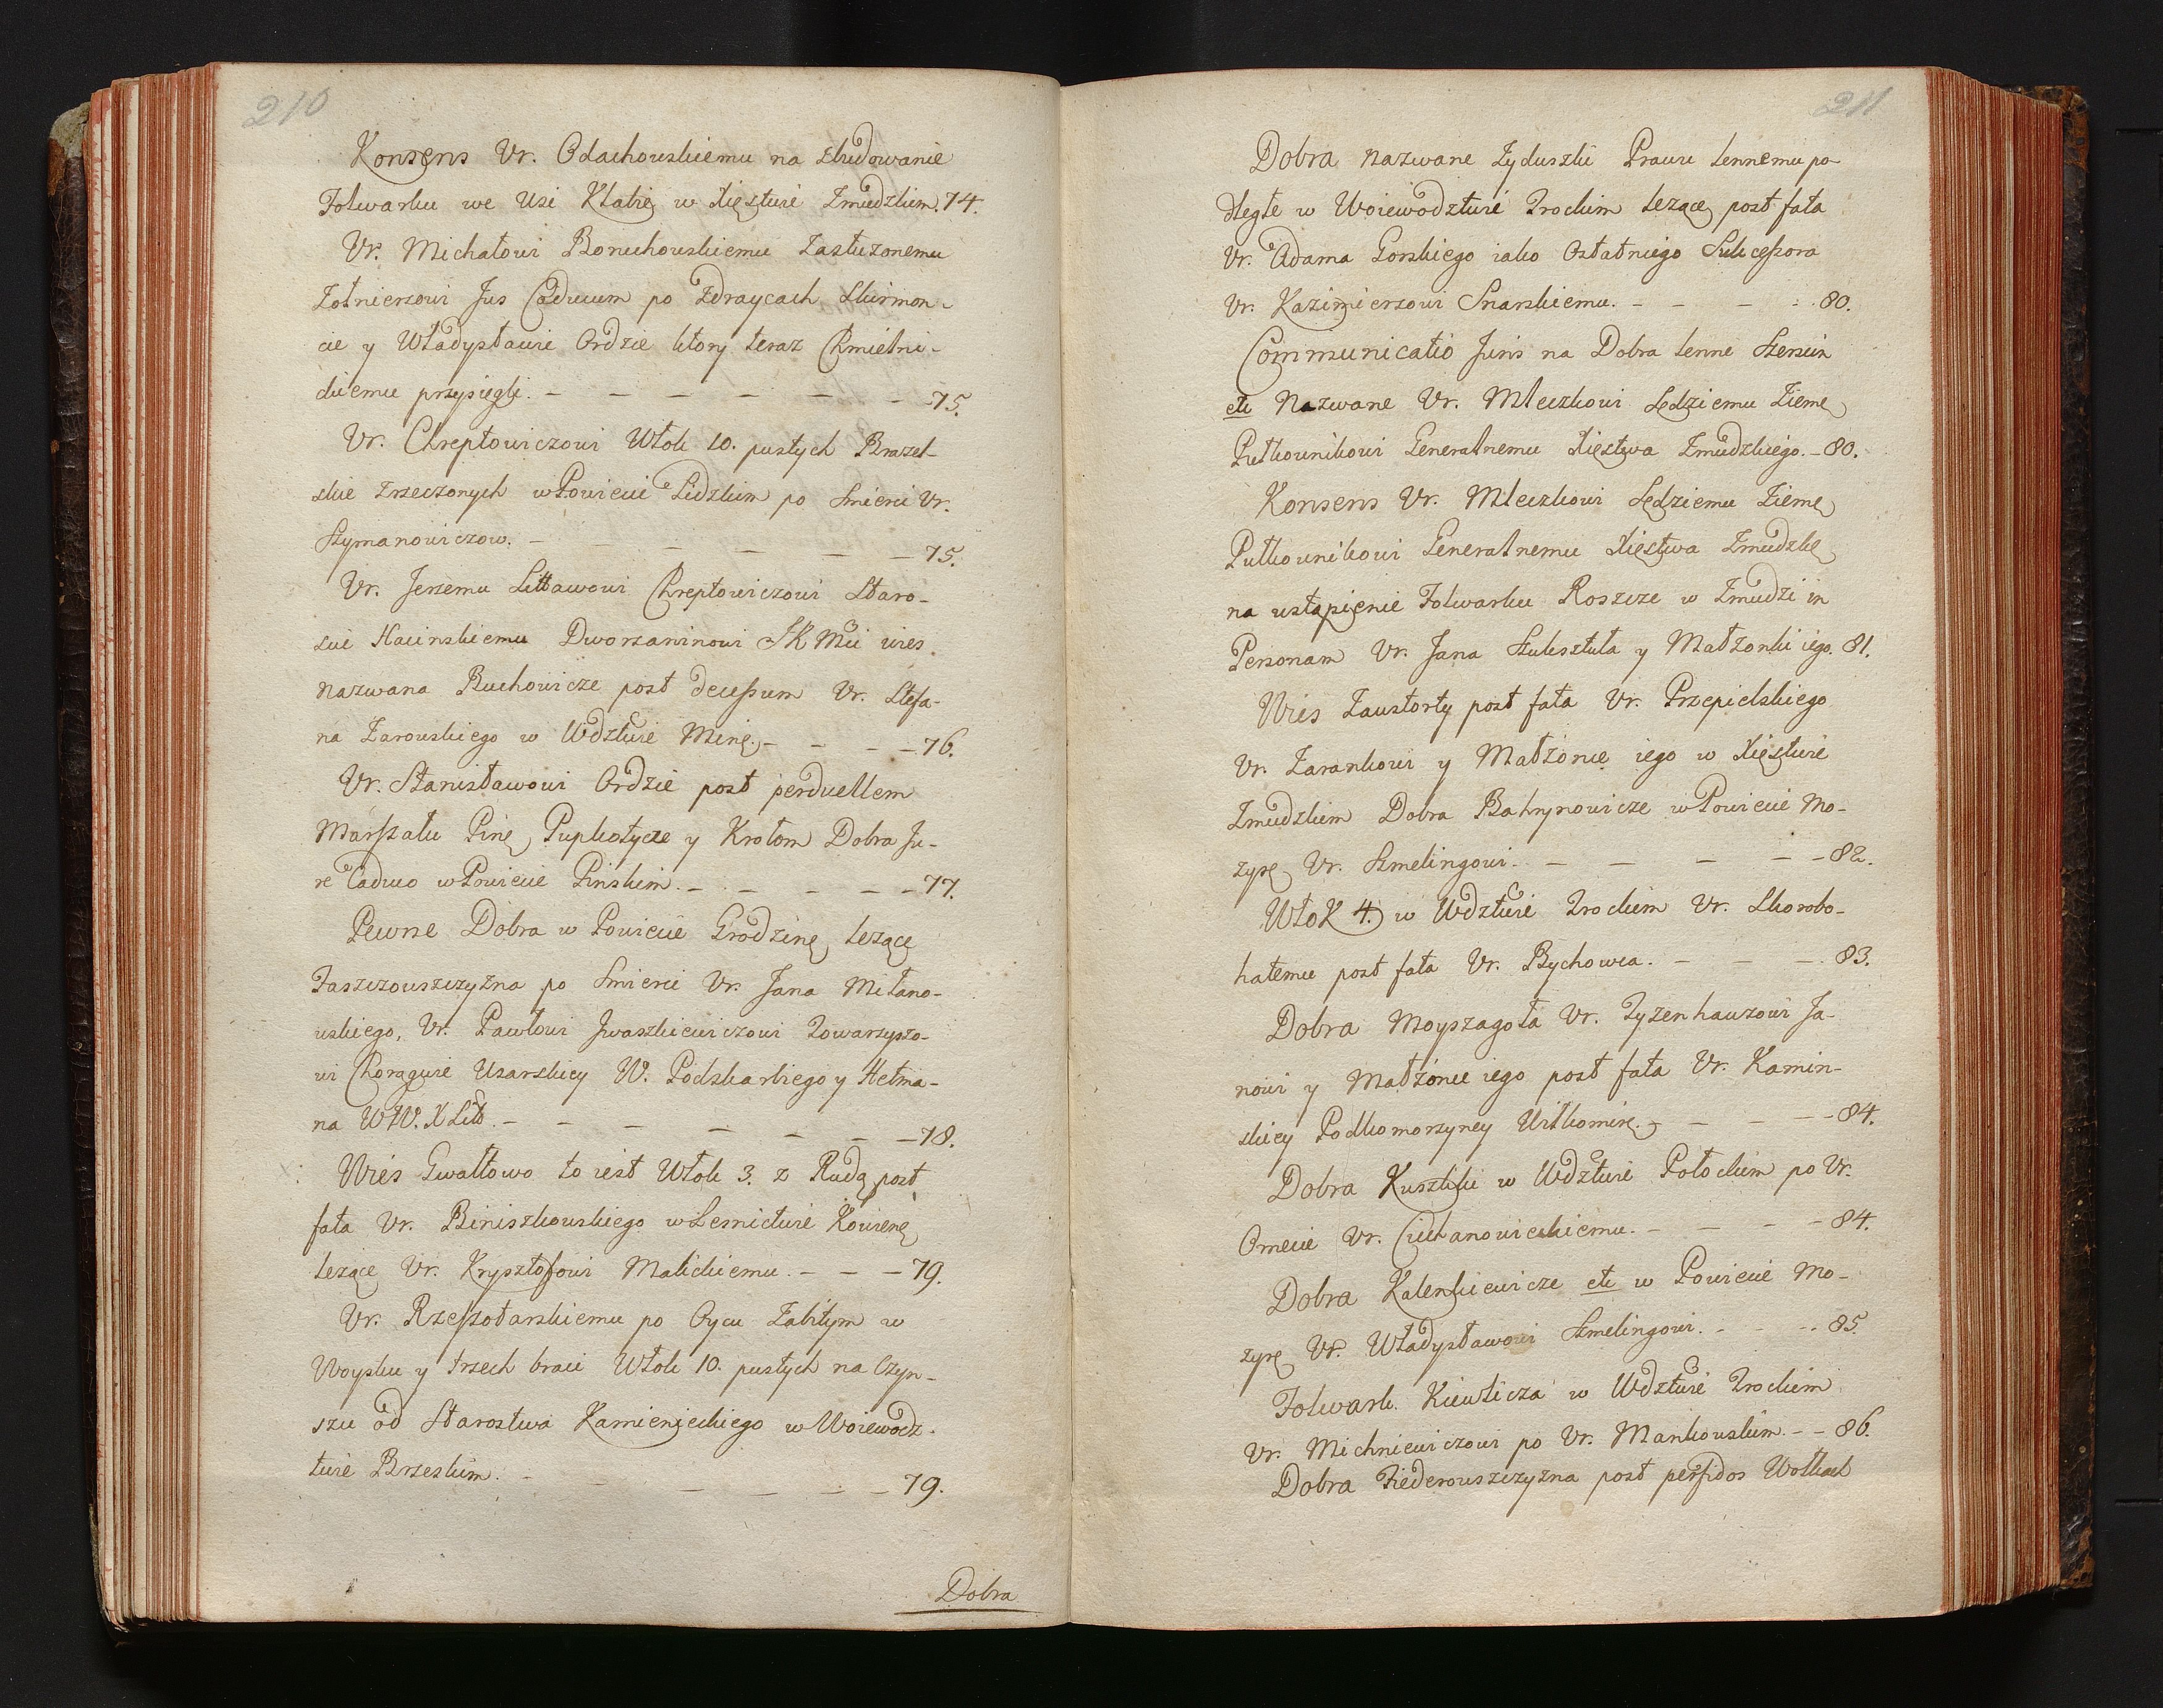 210
Konsens Ur. Odachowskiemu na zbudowanie
Folwarku we Wsi Klabie w Xięstwie Zmudzkim. 74.
Ur. Michałowi Bonuchowskiemu Zasłuzonemu
Zołnierzowi Jus Caducum po Zdraycach Skirmon-
cie y Władysławie Ordzie ktory teraz Chmielni-
ckiemu przysięgli. — — — — — — 75.
Ur. Chreptowiczowi Włok 10. pustych Brazel-
skie rzeczonych w Powiecie Lidzkim po Smierci Ur.
Szymanowiczow. — — — — — 75.
Ur. Jerzemu Littaworowi Chreptowiczowi Staro-
scie Kacinskiemu Dworzaninowi JKMci wies
nazwana Ruchowicze post decessum Ur. Stefa-
na Zarowskiego w Wdztwie Minę. — — — 76.
Ur. Stanisławowi Ordzie post perduellem
Marszału Pinę Pupkotycze y Krotom Dobra Ju-
re Caduco w Powiecie Pinskim. — — — — 77.
Pewne Dobra w Powiecie Grodzinę lezące
Faszczowszczyzna po Smierci Ur. Jana Milano-
wskiego, Ur. Pawłowi Jwaszkiewiczowi Towarzyszo-
wi Chorągwie Usarskiey W. Podskarbiego y Hetma-
na WW. X Litt. — — — — — — 78.
Wies Gwałtowo to iest Włok 3. z Rudą post
fata Ur. Biniszkowskiego w Lesnictwie Kowienę
lezące Ur. Krysztofowi Malickiemu. — — — 79.
Ur. Rzeszotarskiemu po Oycu Zabitym w
Woysku y trzech braci Włok 10. pustych na Czyn-
szu od Starostwa Kamienieckiego w Woiewodz-
twie Brzeskim. — — — — — 79.
Dobra
211
Dobra nazwane Zyduszki Prawu lennemu po-
dległe w Woiewodztwie Trockim lezące post fata
Ur. Adama Gorskiego iako Ostatniego Sukcessora
Ur. Kazimierzowi Snarskiemu. — — — 80.
Communicatio Juris na Dobra lenne Szerwin
etc Nazwane Ur. Mleczkowi Sędziemu Ziemę
Pułkownikowi Generalnemu Xięstwa Zmudzkiego. — 80.
Konsens Ur. Mleczkowi Sędziemu Ziemę
Pułkownikowi Generalnemu Xięstwa Zmudzkę
na ustąpienie Folwarku Roszcze w Zmudzi in
Personam Ur. Jana Szuksztula y Małzonki iego. 81.
Wies Zaustorty post fata Ur. Przepielskiego
Ur. Zarankowi y Małzonce iego w Xięstwie
Zmudzkim Dobra Bahrynowicze w Powiecie Mo-
zyrę Ur. Szmelingowi. — — — — 82.
Włok 4. w Wdztwie Trockim Ur. Skorobo-
hatemu post fata Ur. Bychowca. — — — 83.
Dobra Moyszagoła Ur. Tyzenhauzowi Ja-
nowi y Małzonce iego post fata Ur. Kamin-
skiey Podkomorzyney Wiłkomirę. — — — 84.
Dobra Kuszliki w Wdztwie Połockim po Ur.
Omecie Ur. Ciechanowieckiemu. — — — — 84.
Dobra Kalenkiewicze etc w Powiecie Mo-
zyrę Ur. Władysławowi Szmelingowi. — — 85.
Folwark Kiewlicza w Wdztwie Trockim
Ur. Michniewiczowi po Ur. Mankowskim. — — 86.
Dobra Fiederowszczyzna post perfidos Wołkach